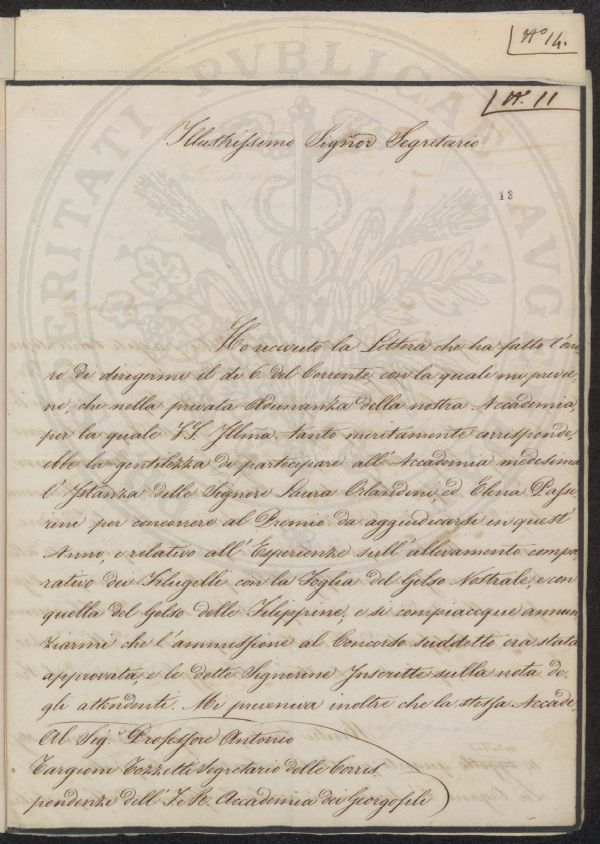 N.º 14.
N.º 11
Illustrissimo Signor Segretario
13
Ho ricevuto la Lettera che ha fatto l'ono
re di dirigermi il dì 6 del Corrente con la quale mi preve
ne, che nella privata Adunanza della nostra Accademia
per la quale V.S. Illma. tanto meritamente corrisponde,
ebbe la gentilezza di partecipare all'Accademia medesima
l'Istanza delle Signore Laura Orlandini, ed Elena Passe
rini per concorrere al Premio da aggiudicarsi in quest'
Anno, e relativo all'Esperienze sull'allevamento compa
rativo dei Filugelli con la Foglia del Gelso Nostrale, e con
quella del Gelso delle Filippine, e si compiacque annun
ziarmi che l'ammissione al Concorso suddetto era stata
approvata, e le dette Signorine Inscritte sulla nota de
gli attendenti. Mi preveniva inoltre che la stessa Accade
Al Sig.r Professore Antonio
Targioni Tozzetti Segretario delle Corris
pondenze dell'I. e R. Accademia dei Georgofili
PROSPERITATI PUBLICAE AUG